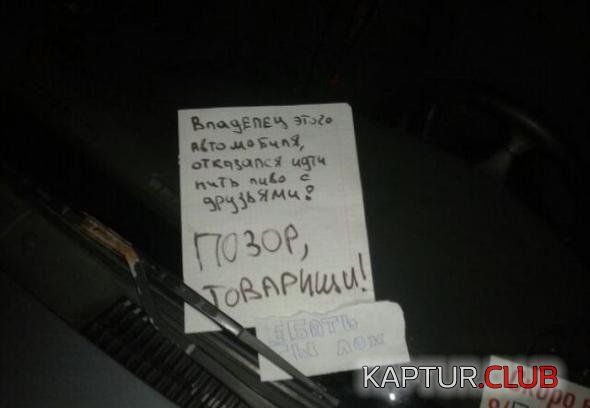 Владелец этого
автомобиля,
отказался идти
пить пиво с
друзьями!
ПОЗОР,
ТОВАРИЩИ!
ЕБАТЬ
ТЫ ЛОХ
KAPTUR.CLUB